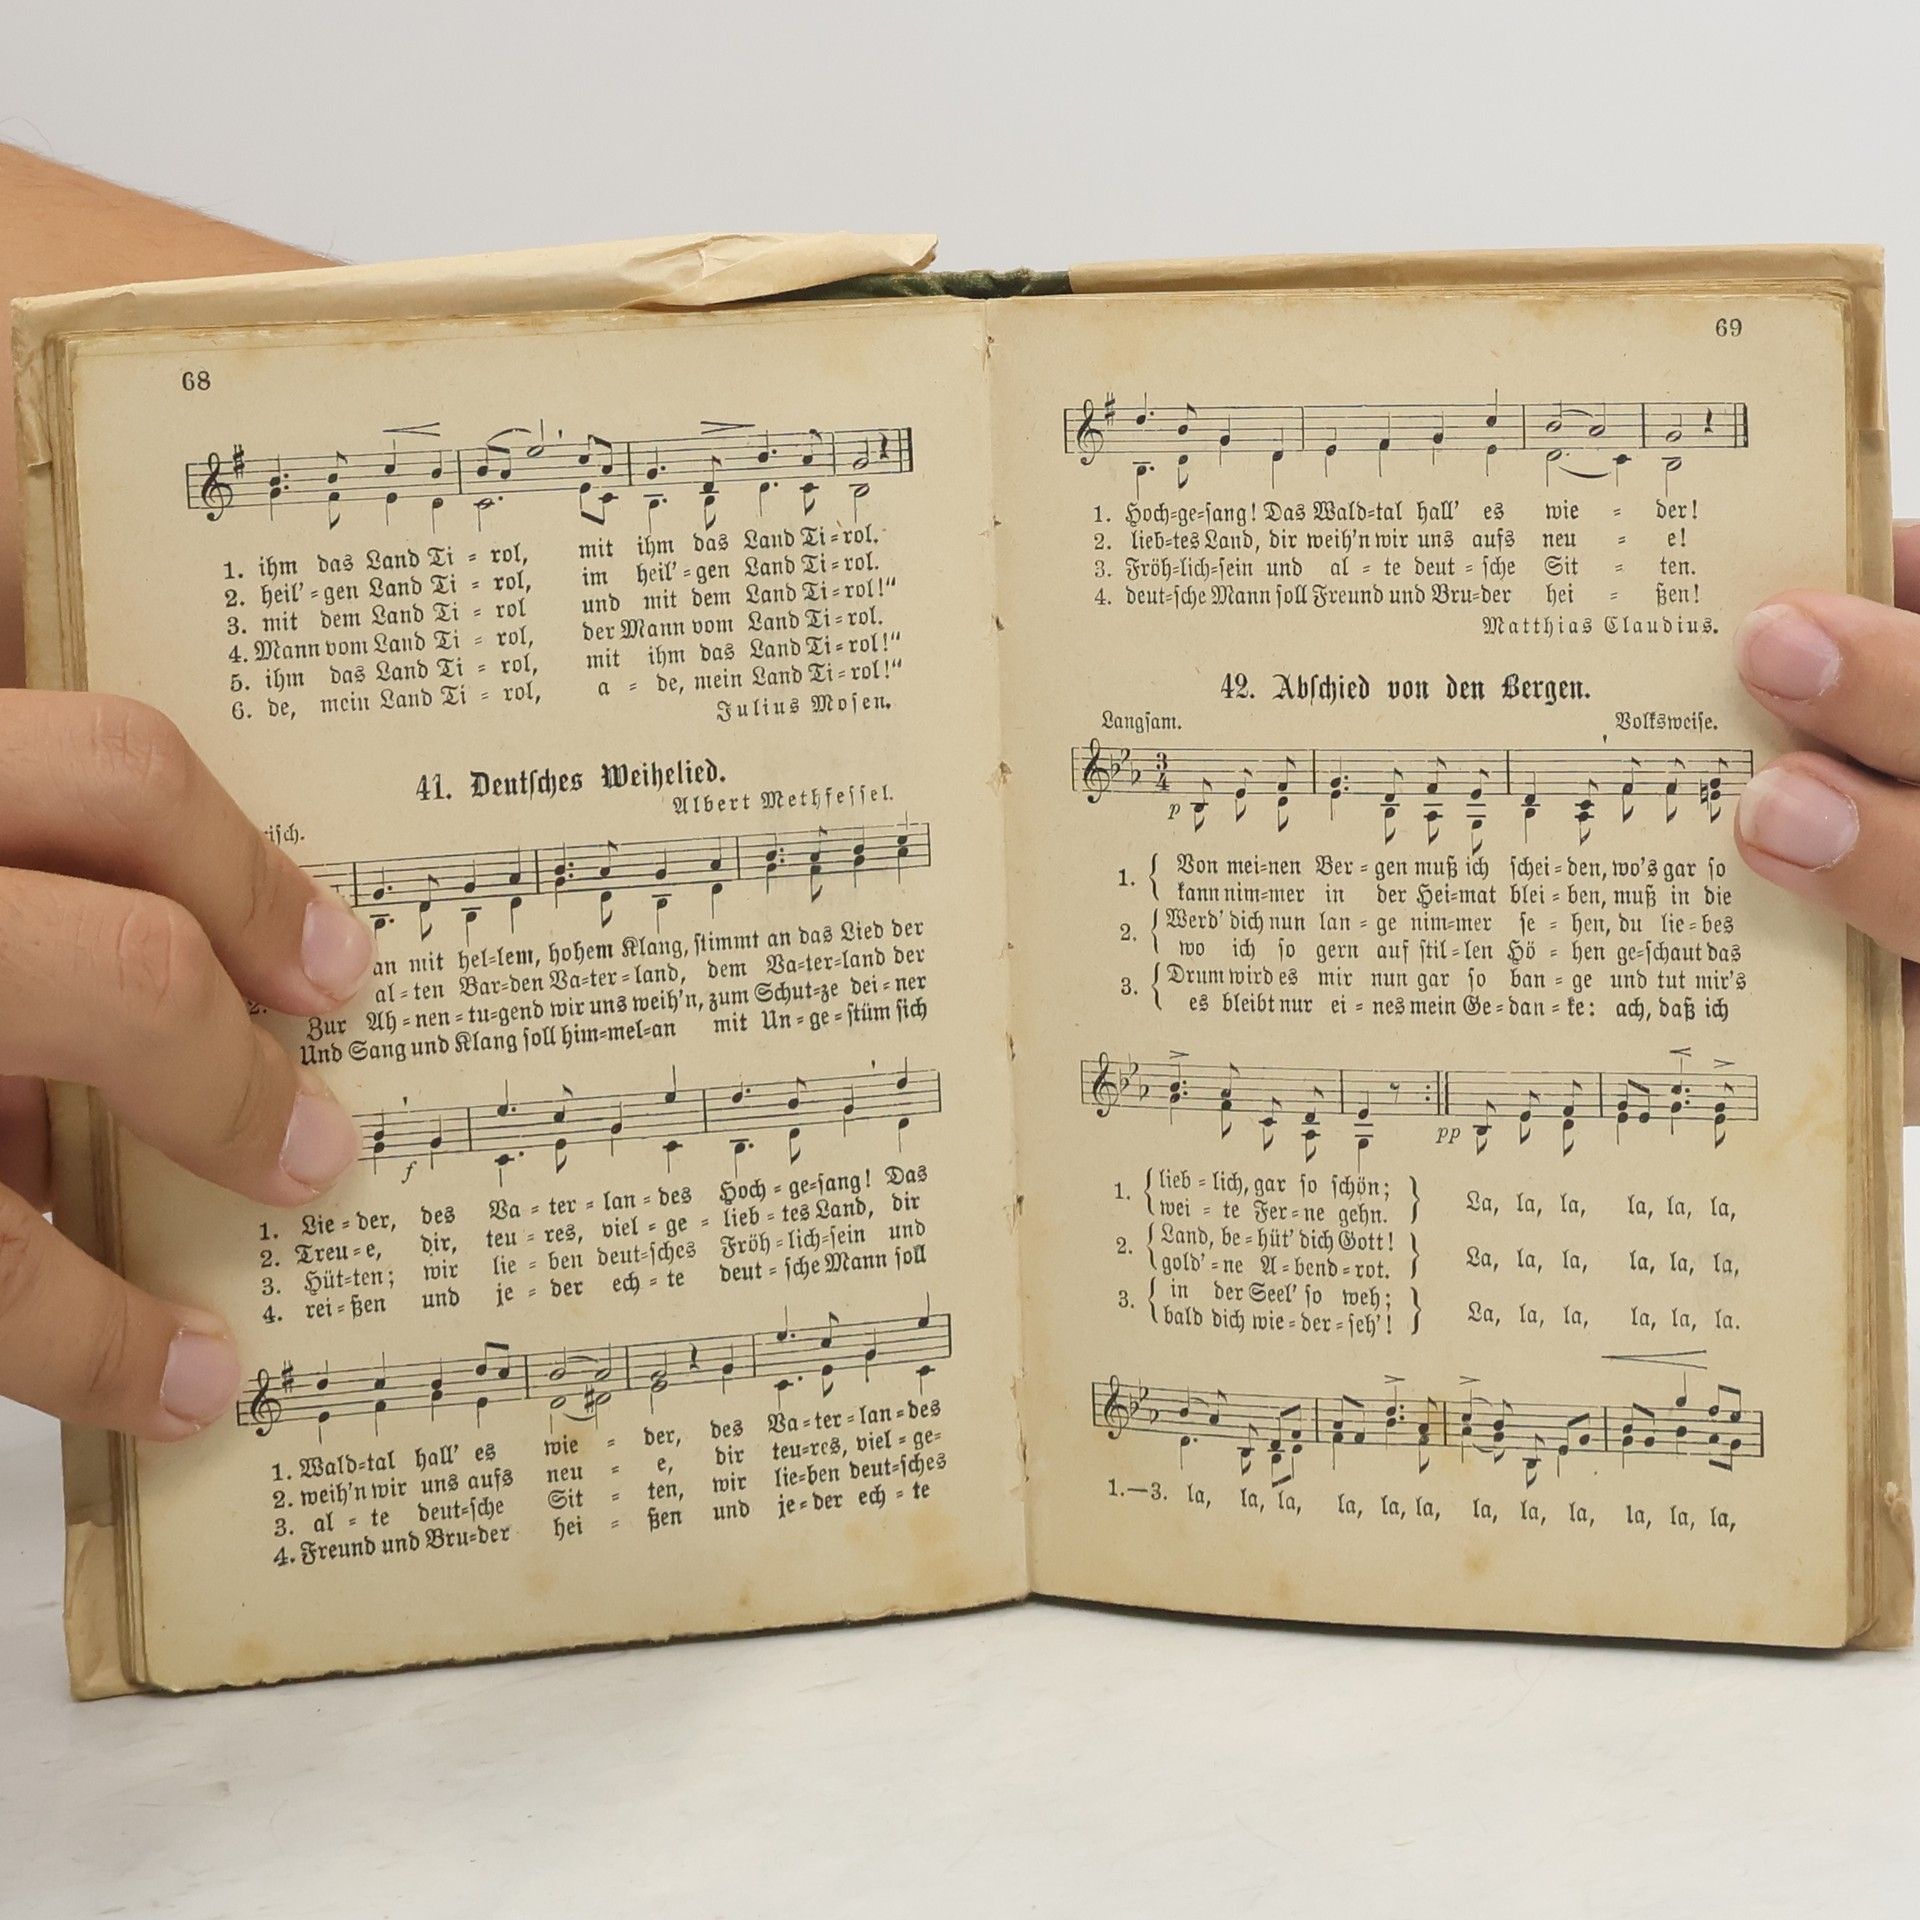 68
1. ihm das Land Ti = rol, mit ihm das Land Ti=rol.
2. heil'=gen Land Ti = rol, im heil'=gen Land Ti=rol.
3. mit dem Land Ti = rol und mit dem Land Ti=rol!“
4. Mann vom Land Ti = rol, der Mann vom Land Ti=rol.
5. ihm das Land Ti = rol, mit ihm das Land Ti=rol!“
6. de, mein Land Ti = rol, a = de, mein Land Ti=rol!“
Julius Moſen.
41. Deutſches Weihelied.
Albert Methfeſſel.
an mit hel=lem, hohem Klang, ſtimmt an das Lied der
2. al=ten Bar=den Va=ter=land, dem Va=ter=land der
Zur Ah=nen=tu=gend wir uns weih'n, zum Schut=ze dei=ner
Und Sang und Klang ſoll him=mel=an mit Un=ge=ſtüm ſich
f
1. Lie=der, des Va=ter=lan=des Hoch=ge=ſang! Das
2. Treu=e, dir, teu=res, viel=ge=lieb=tes Land, dir
3. Hüt=ten; wir lie=ben deut=ſches Fröh=lich=ſein und
4. rei=ßen und je=der ech=te deut=ſche Mann ſoll
1. Wald=tal hall' es wie = der, des Va=ter=lan=des
2. weih'n wir uns aufs neu = e, dir teu=res, viel=ge=
3. al = te deut=ſche Sit = ten, wir lie=ben deut=ſches
4. Freund und Bru=der hei = ßen und je=der ech = te
69
1. Hoch=ge=ſang! Das Wald=tal hall' es wie = der!
2. lieb=tes Land, dir weih'n wir uns aufs neu = e!
3. Fröh=lich=ſein und al = te deut=ſche Sit = ten.
4. deut=ſche Mann ſoll Freund und Bru=der hei = ßen!
Matthias Claudius.
42. Abſchied von den Bergen.
Langſam. Volksweiſe.
3
4
p
1. { Von mei=nen Ber=gen muß ich ſchei=den, wo's gar ſo
kann nim=mer in der Hei=mat blei=ben, muß in die
2. { Werd' dich nun lan=ge nim=mer ſe=hen, du lie=bes
wo ich ſo gern auf ſtil=len Hö=hen ge=ſchaut das
3. { Drum wird es mir nun gar ſo ban=ge und tut mir's
es bleibt nur ei=nes mein Ge=dan=ke: ach, daß ich
pp
1. { lieb=lich, gar ſo ſchön; } La, la, la, la, la, la,
wei = te Fer=ne gehn.
2. { Land, be=hüt' dich Gott! } La, la, la, la, la, la,
gold'=ne A=bend=rot.
3. { in der Seel' ſo weh; } La, la, la, la, la, la.
bald dich wie=der=ſeh'!
1.—3. la, la, la, la, la, la, la, la, la, la, la, la,